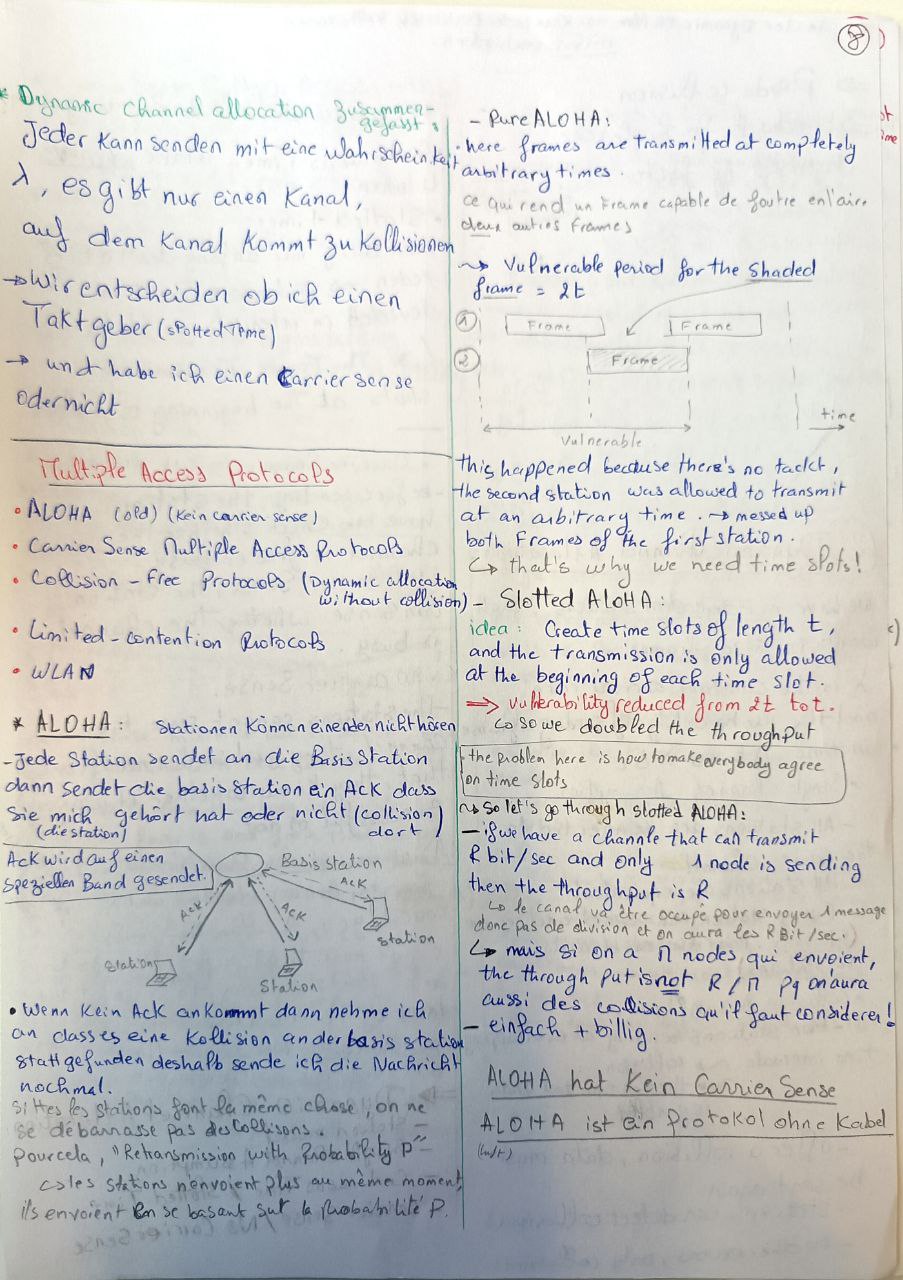 8
* Dynamic channel allocation zusammen-
gefasst:
Jeder kann senden mit eine Wahrscheinkeit
λ, es gibt nur einen Kanal,
auf dem Kanal kommt zu Kollisionen
→ Wir entscheiden ob ich einen
Taktgeber (spotted Time)
→ und habe ich einen Carrier sense
oder nicht
Multiple Access Protocols
• ALOHA (old) (kein carrier sense)
• Carrier Sense Multiple Access Protocols
• Collision - free Protocols (Dynamic allocation
without collision)
• Limited - contention Protocols
• WLAN
* ALOHA: Stationen können einender nicht hören
- Jede Station sendet an die Basis Station
dann sendet die basis station ein Ack dass
Sie mich gehört hat oder nicht (collision
(die station) dort)
Ack wird auf einen
speziellen Band gesendet.
Basis station
Ack
Ack
Ack
Station
Station
Station
• Wenn kein Ack ankommt dann nehme ich
an dass es eine Kollision an der basis station
stattgefunden deshalb sende ich die Nachricht
nochmal.
Si ttes les stations font la même chose, on ne
se débarrasse pas des collisons.
Pour cela, "Retransmission with Probability P"
↪ les stations n'envoient plus au même moment,
ils envoient en se basant sur la probabilité P.
- Pure ALOHA:
• here frames are transmitted at completely
arbitrary times.
ce qui rend un Frame capable de foutre en l'aire
deux autres Frames
⤳ Vulnerable period for the shaded
frame = 2t
1 Frame Frame
2 Frame
time
Vulnerable
this happened because there's no tackt,
the second station was allowed to transmit
at an arbitrary time. → messed up
both Frames of the first station.
↪ that's why we need time slots!
- Slotted ALOHA:
idea: Create time slots of length t,
and the transmission is only allowed
at the beginning of each time slot.
⇒ vulnerability reduced from 2t to t.
↪ so we doubled the throughput
the problem here is how to make everybody agree
on time slots
⤳ So let's go through slotted ALOHA:
- if we have a channle that can transmit
R bit/sec and only 1 node is sending
then the throughput is R
↪ le canal va être occupé pour envoyer 1 message
donc pas de division et on aura les R Bit/sec.
↪ mais si on a n nodes qui envoient,
the through put is not R/n pq on aura
aussi des collisions qu'il faut considerer!
- einfach + billig.
ALOHA hat kein Carrier Sense
ALOHA ist ein Protokol ohne Kabel